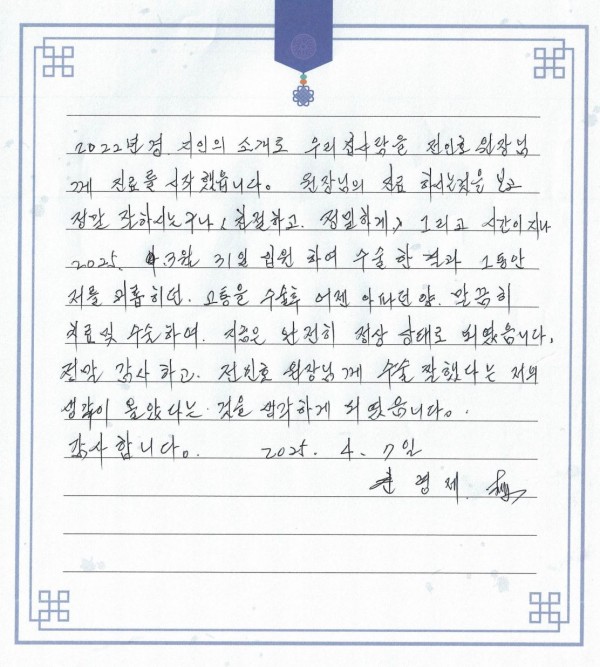 2022년경 지인의 소개로 우리집사람을 전인호 원장님
께 진료를 시작했읍니다. 원장님의 진료 하시는것을 보고
정말 잘하시는구나 (친절하고. 정밀하게) 그리고 시간이 지나
2025. 3월 31일 입원 하여 수술 한 결과 그동안
저를 괴롭히던. 고통을 수술후 어젠 아파던양. 말끔히
치료및 수술하여. 지금은 완전히 정상 상태로 되였읍니다.
정말 감사 하고. 전인호 원장님께 수술 잘했다는 저의
생각이 옳았다는 것을 생각하게 되였읍니다.
감사합니다. 2025. 4. 7일
경제.